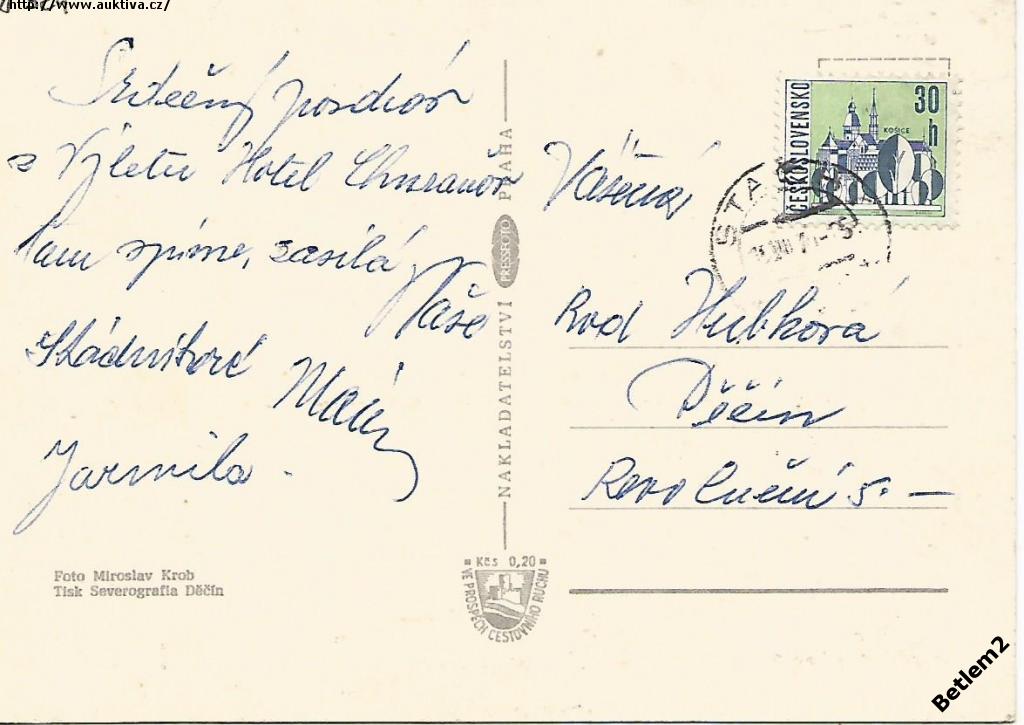 http://www.auktiva.cz/
Srdečný pozdrav
z Výletu Hotel Churanov
tam spíme, zasílá
Vaše
Skládníkové
Jarmila.
Foto Miroslav Krob
Tisk Severografia Děčín
NAKLADATELSTVÍ PRESSFOTO PRAHA
Kčs 0,20
VE PROSPĚCH CESTOVNÍHO RUCHU
ČESKOSLOVENSKO
30
h
KOŠICE
Vážená
Rod Hubková
Děčín
Revoluční 5. —
Betlem2